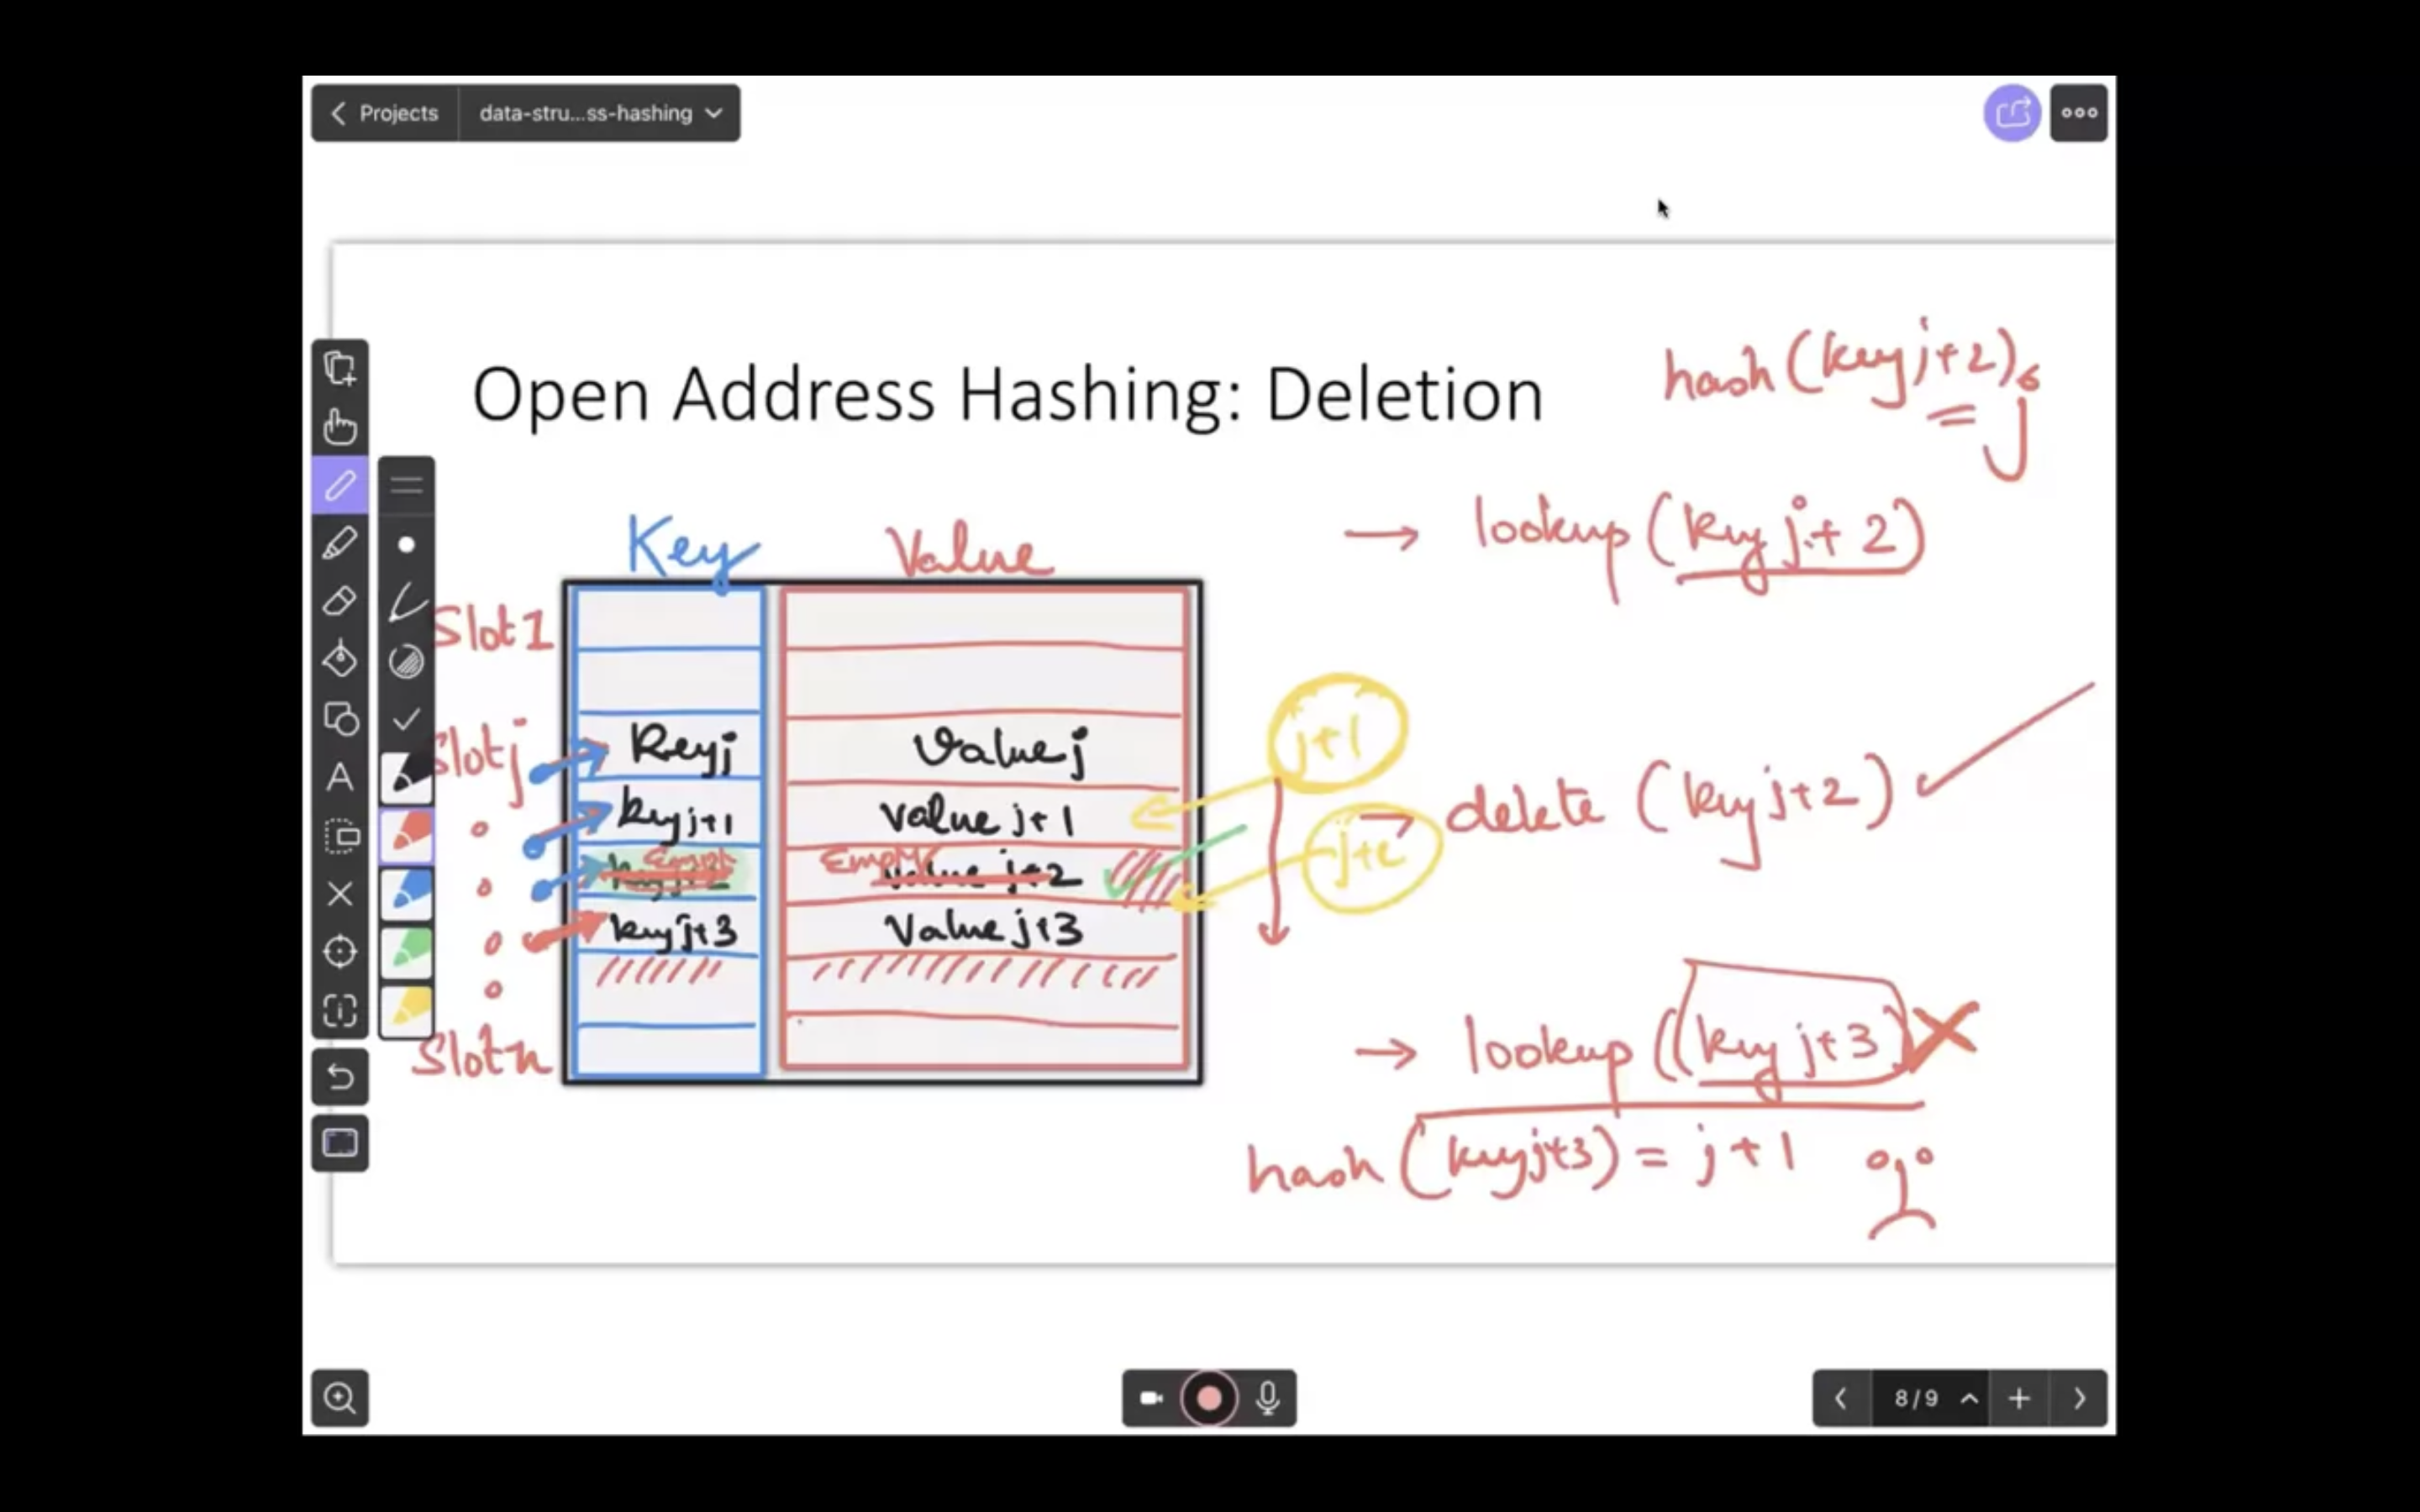 Projects
data-stru...ss-hashing
Open Address Hashing: Deletion
hash (key j+2)
= j
→ lookup (key j+2)
Key
Value
Slot 1
Slot j
Key j
Value j
j+1
key j+1
Value j+1
→ delete (key j+2)
Empty
Empty
value j+2
key j+3
Value j+3
→ lookup (key j+3)
Slot n
hash (key j+3) = j+1
8/9